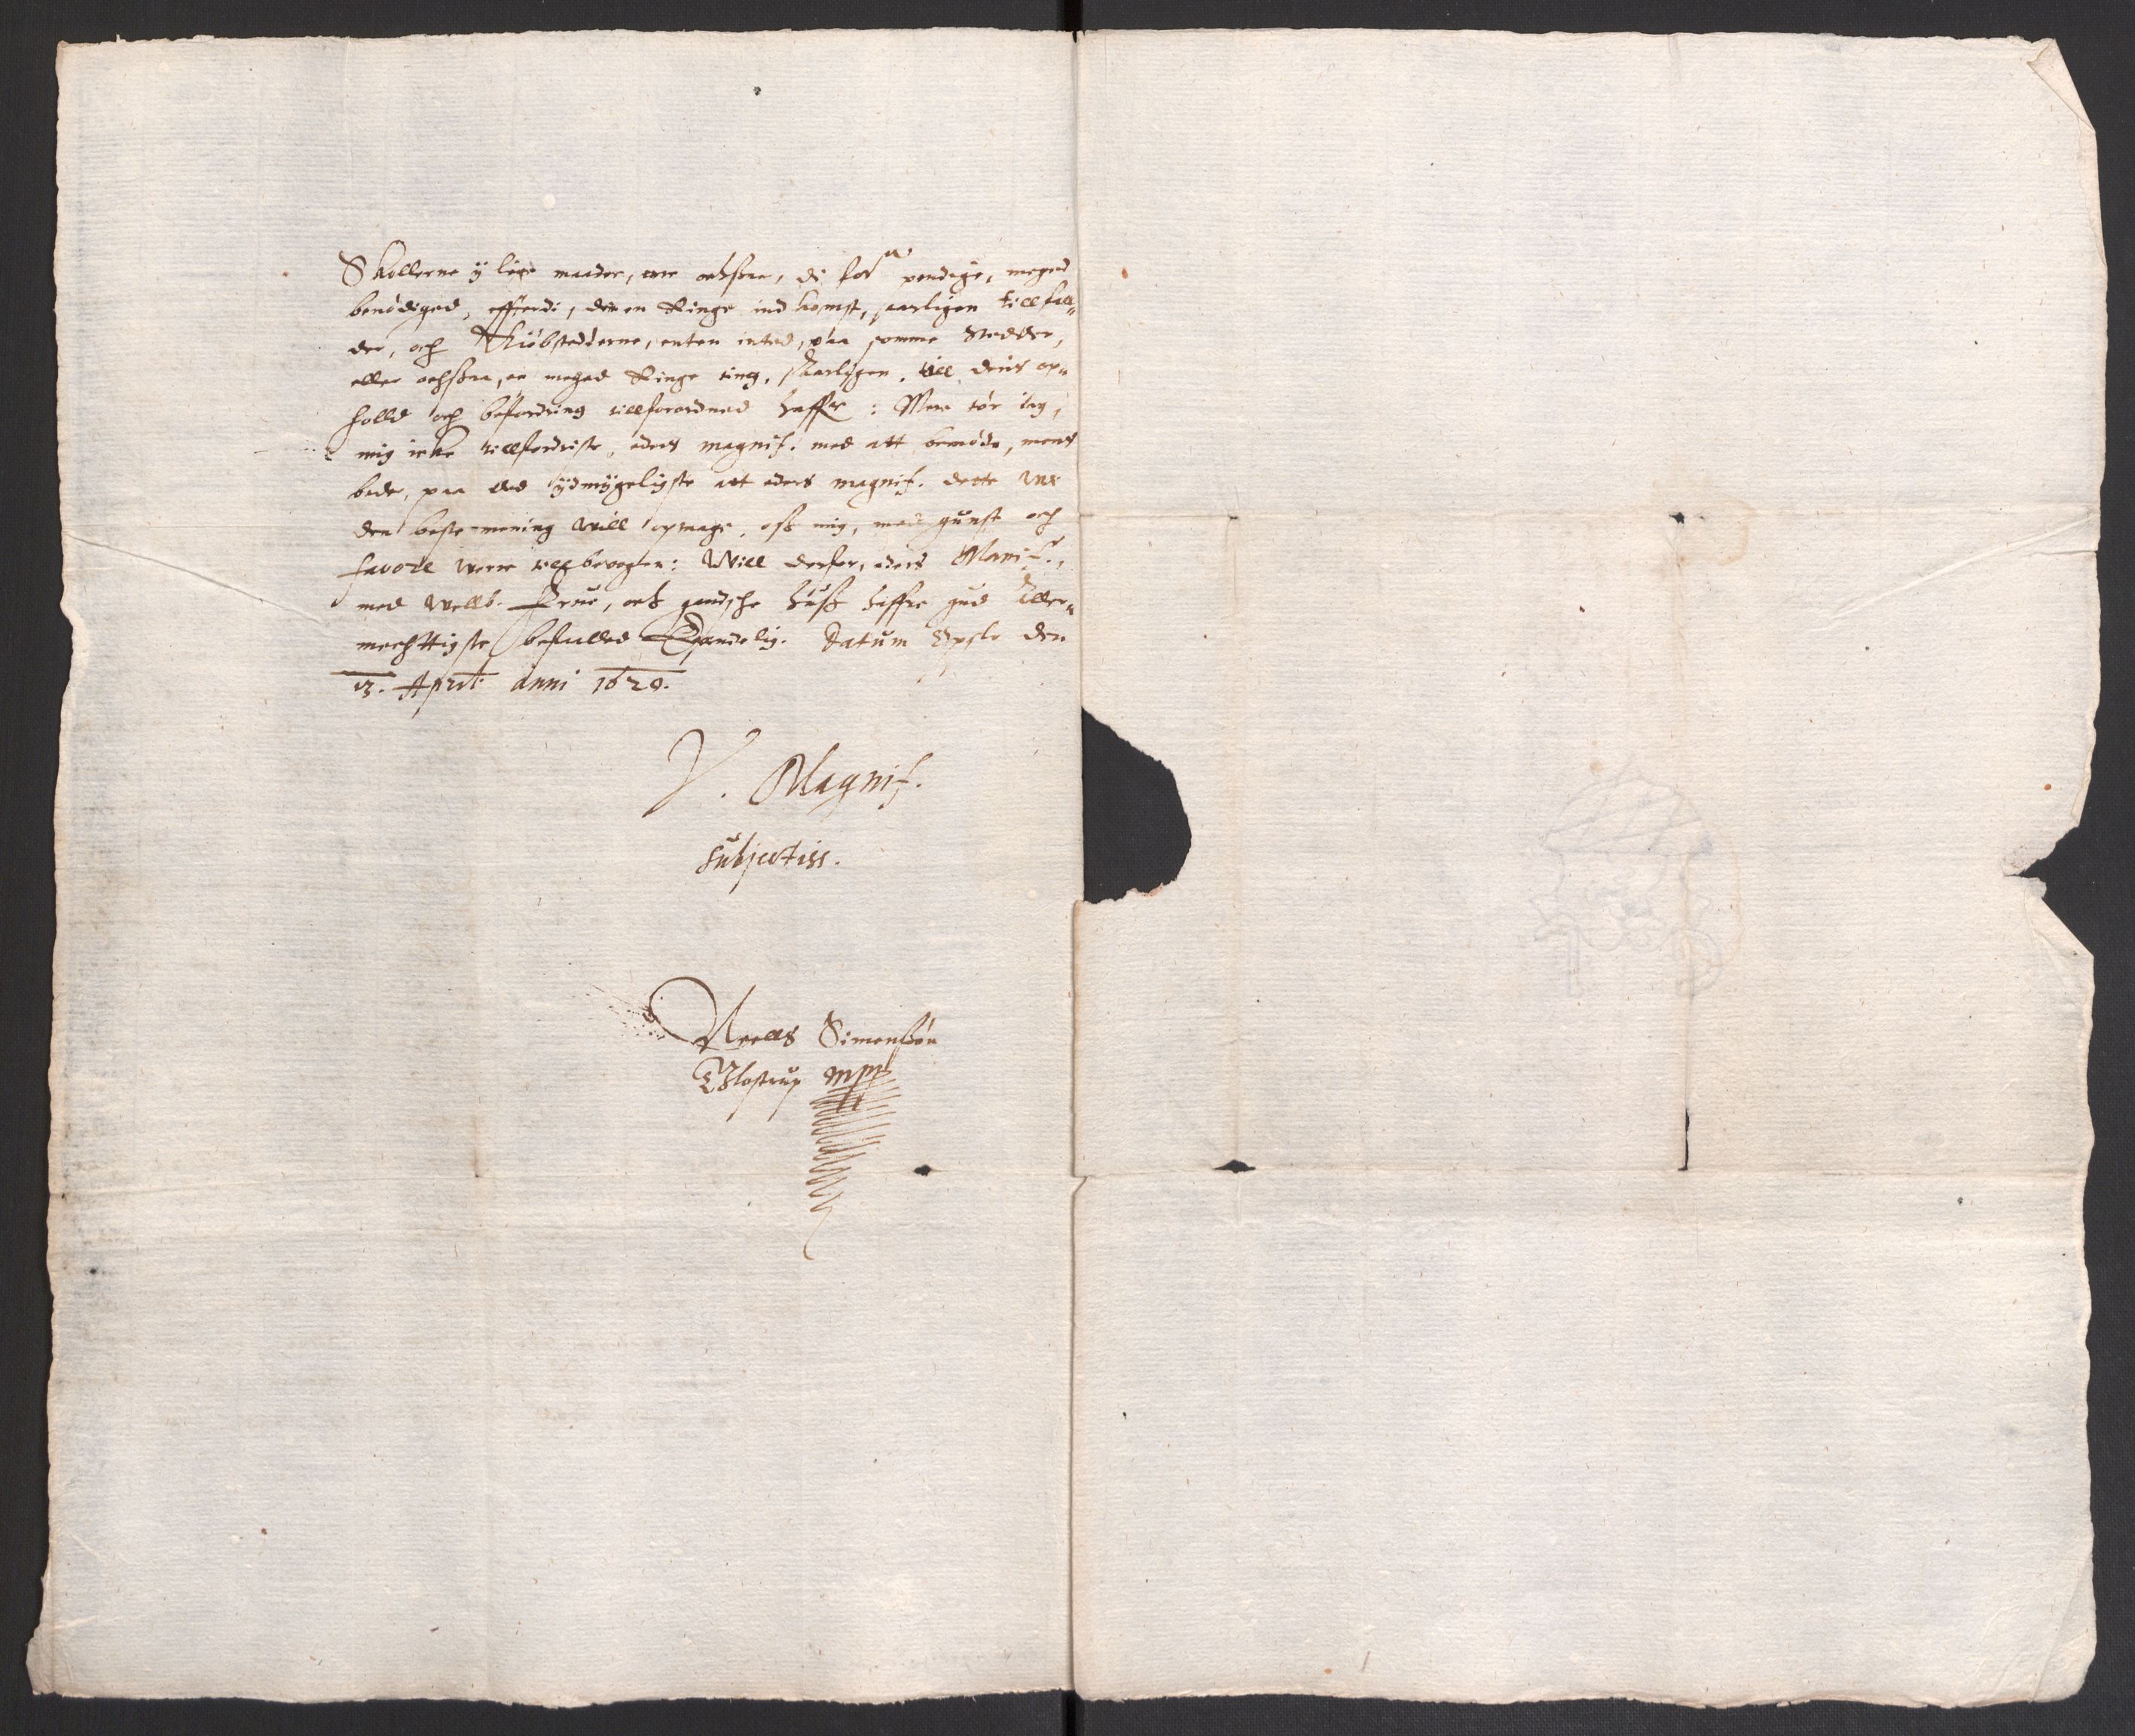 Skollerne y lige maader, ere ochsaa, di for^ne pendinge, meged
benödiged, effterdi, der en Ringe ind komst, aarligen till fall„
der, och Kiöbstederne, enten inted, paa somme Stedder,
eller ochsaa, en meged Ringe ting, aarligen, till deris op„
holld och befordring tillforordned haffer: Men tör ieg,
mig icke tillfordriste, eders magnif. med att bemöde, mens
beder, paa ded ydmygeligste att eders magnif. dette udi
den beste mening will optage, och mig, med gunst och
favore were till bevogten: Will derfor, eders Manif.,
med Wellb. Frue, och gandsche huss haffve gud Aller„
mechttigste befalled Ewindelig. Datum Opslo den
13. April: Anni 1620.
V. Magnif.
subjectiss.
Niells Simenssön
Glostrup mpp